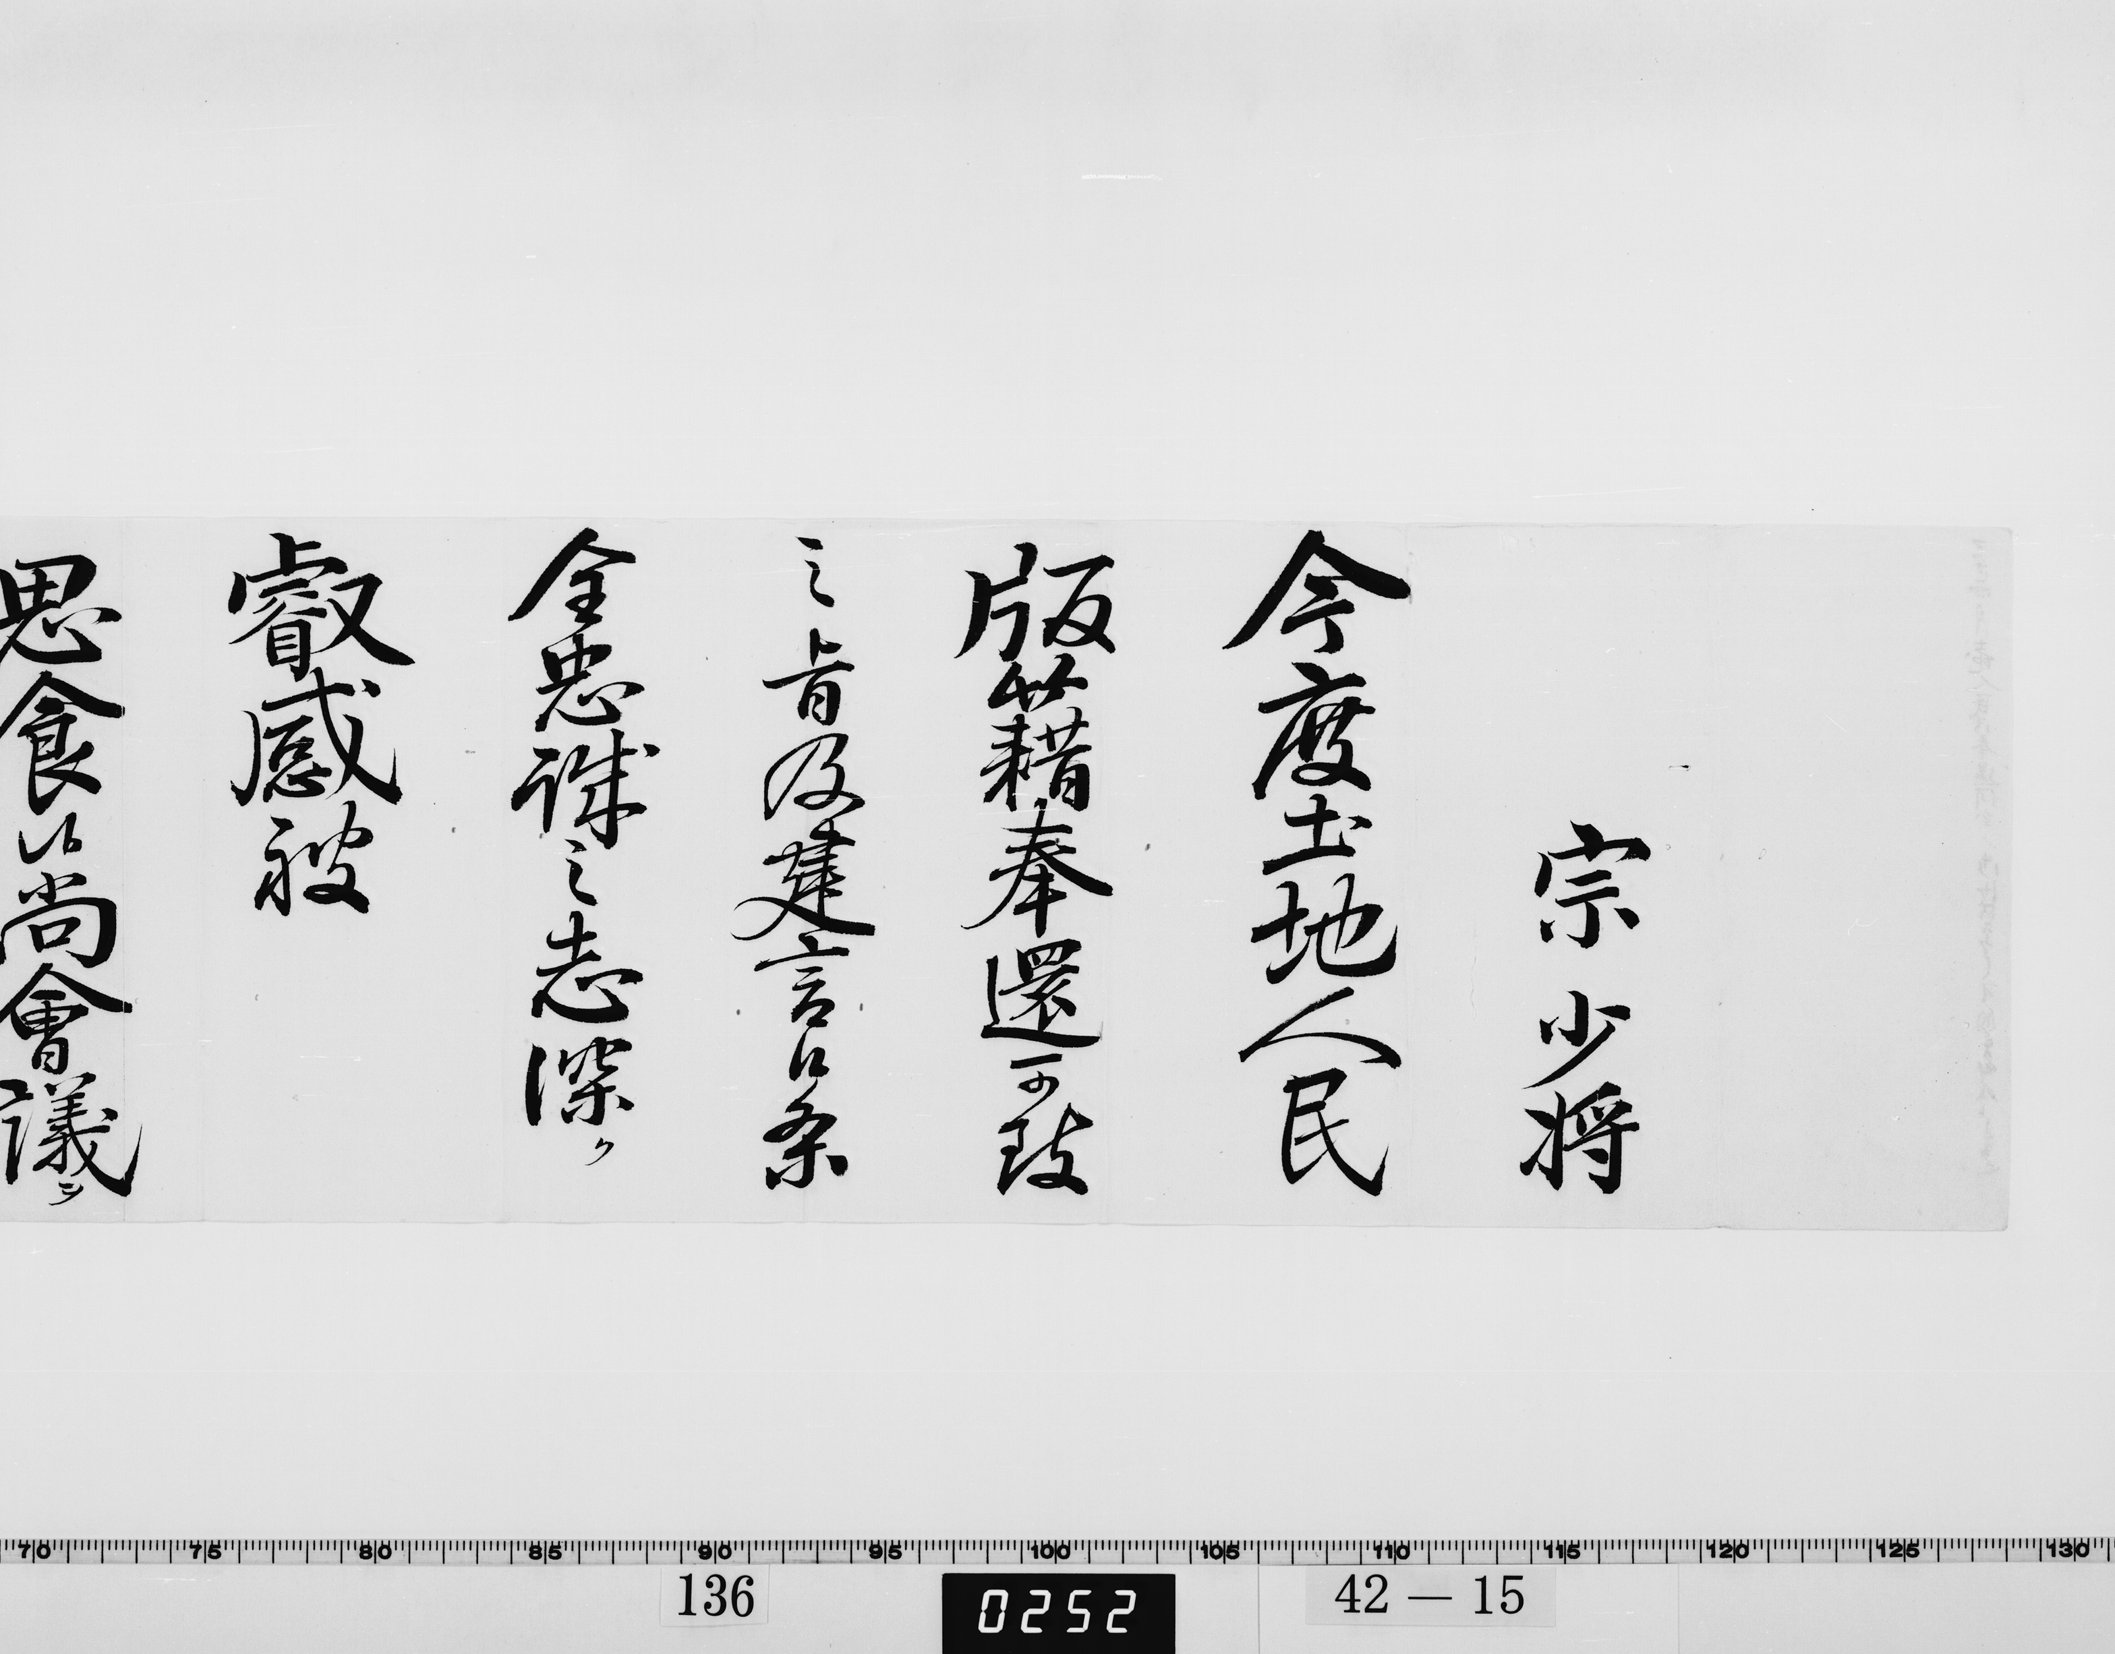 宗少将
今度土地人民
版籍奉還可致
之旨及建言候条
全忠誠之志深ク
叡感被
思食候尚會議ヲ
70 75 80 85 90 95 100 105 110 115 120 125 130
136
0252
42－15